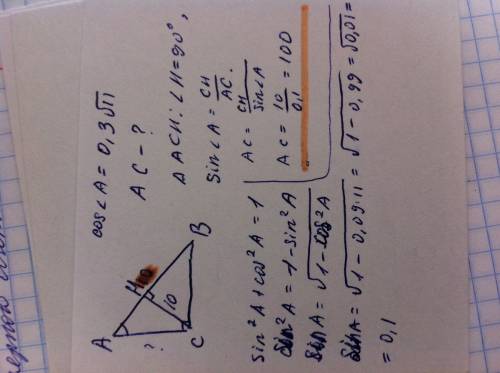 cos∠A = 0,3√11
AC - ?
△ACH: ∠H = 90°,
sin∠A = CH/AC.
AC = CH/sin∠A
AC = 10/0,1 = 100
A
H
B
10
?
C
sin²A + cos²A = 1
sin²A = 1 - sin²A
sin A = √1 - cos²A
sin A = √1 - 0,09·11 = √1 - 0,99 = √0,01 =
= 0,1